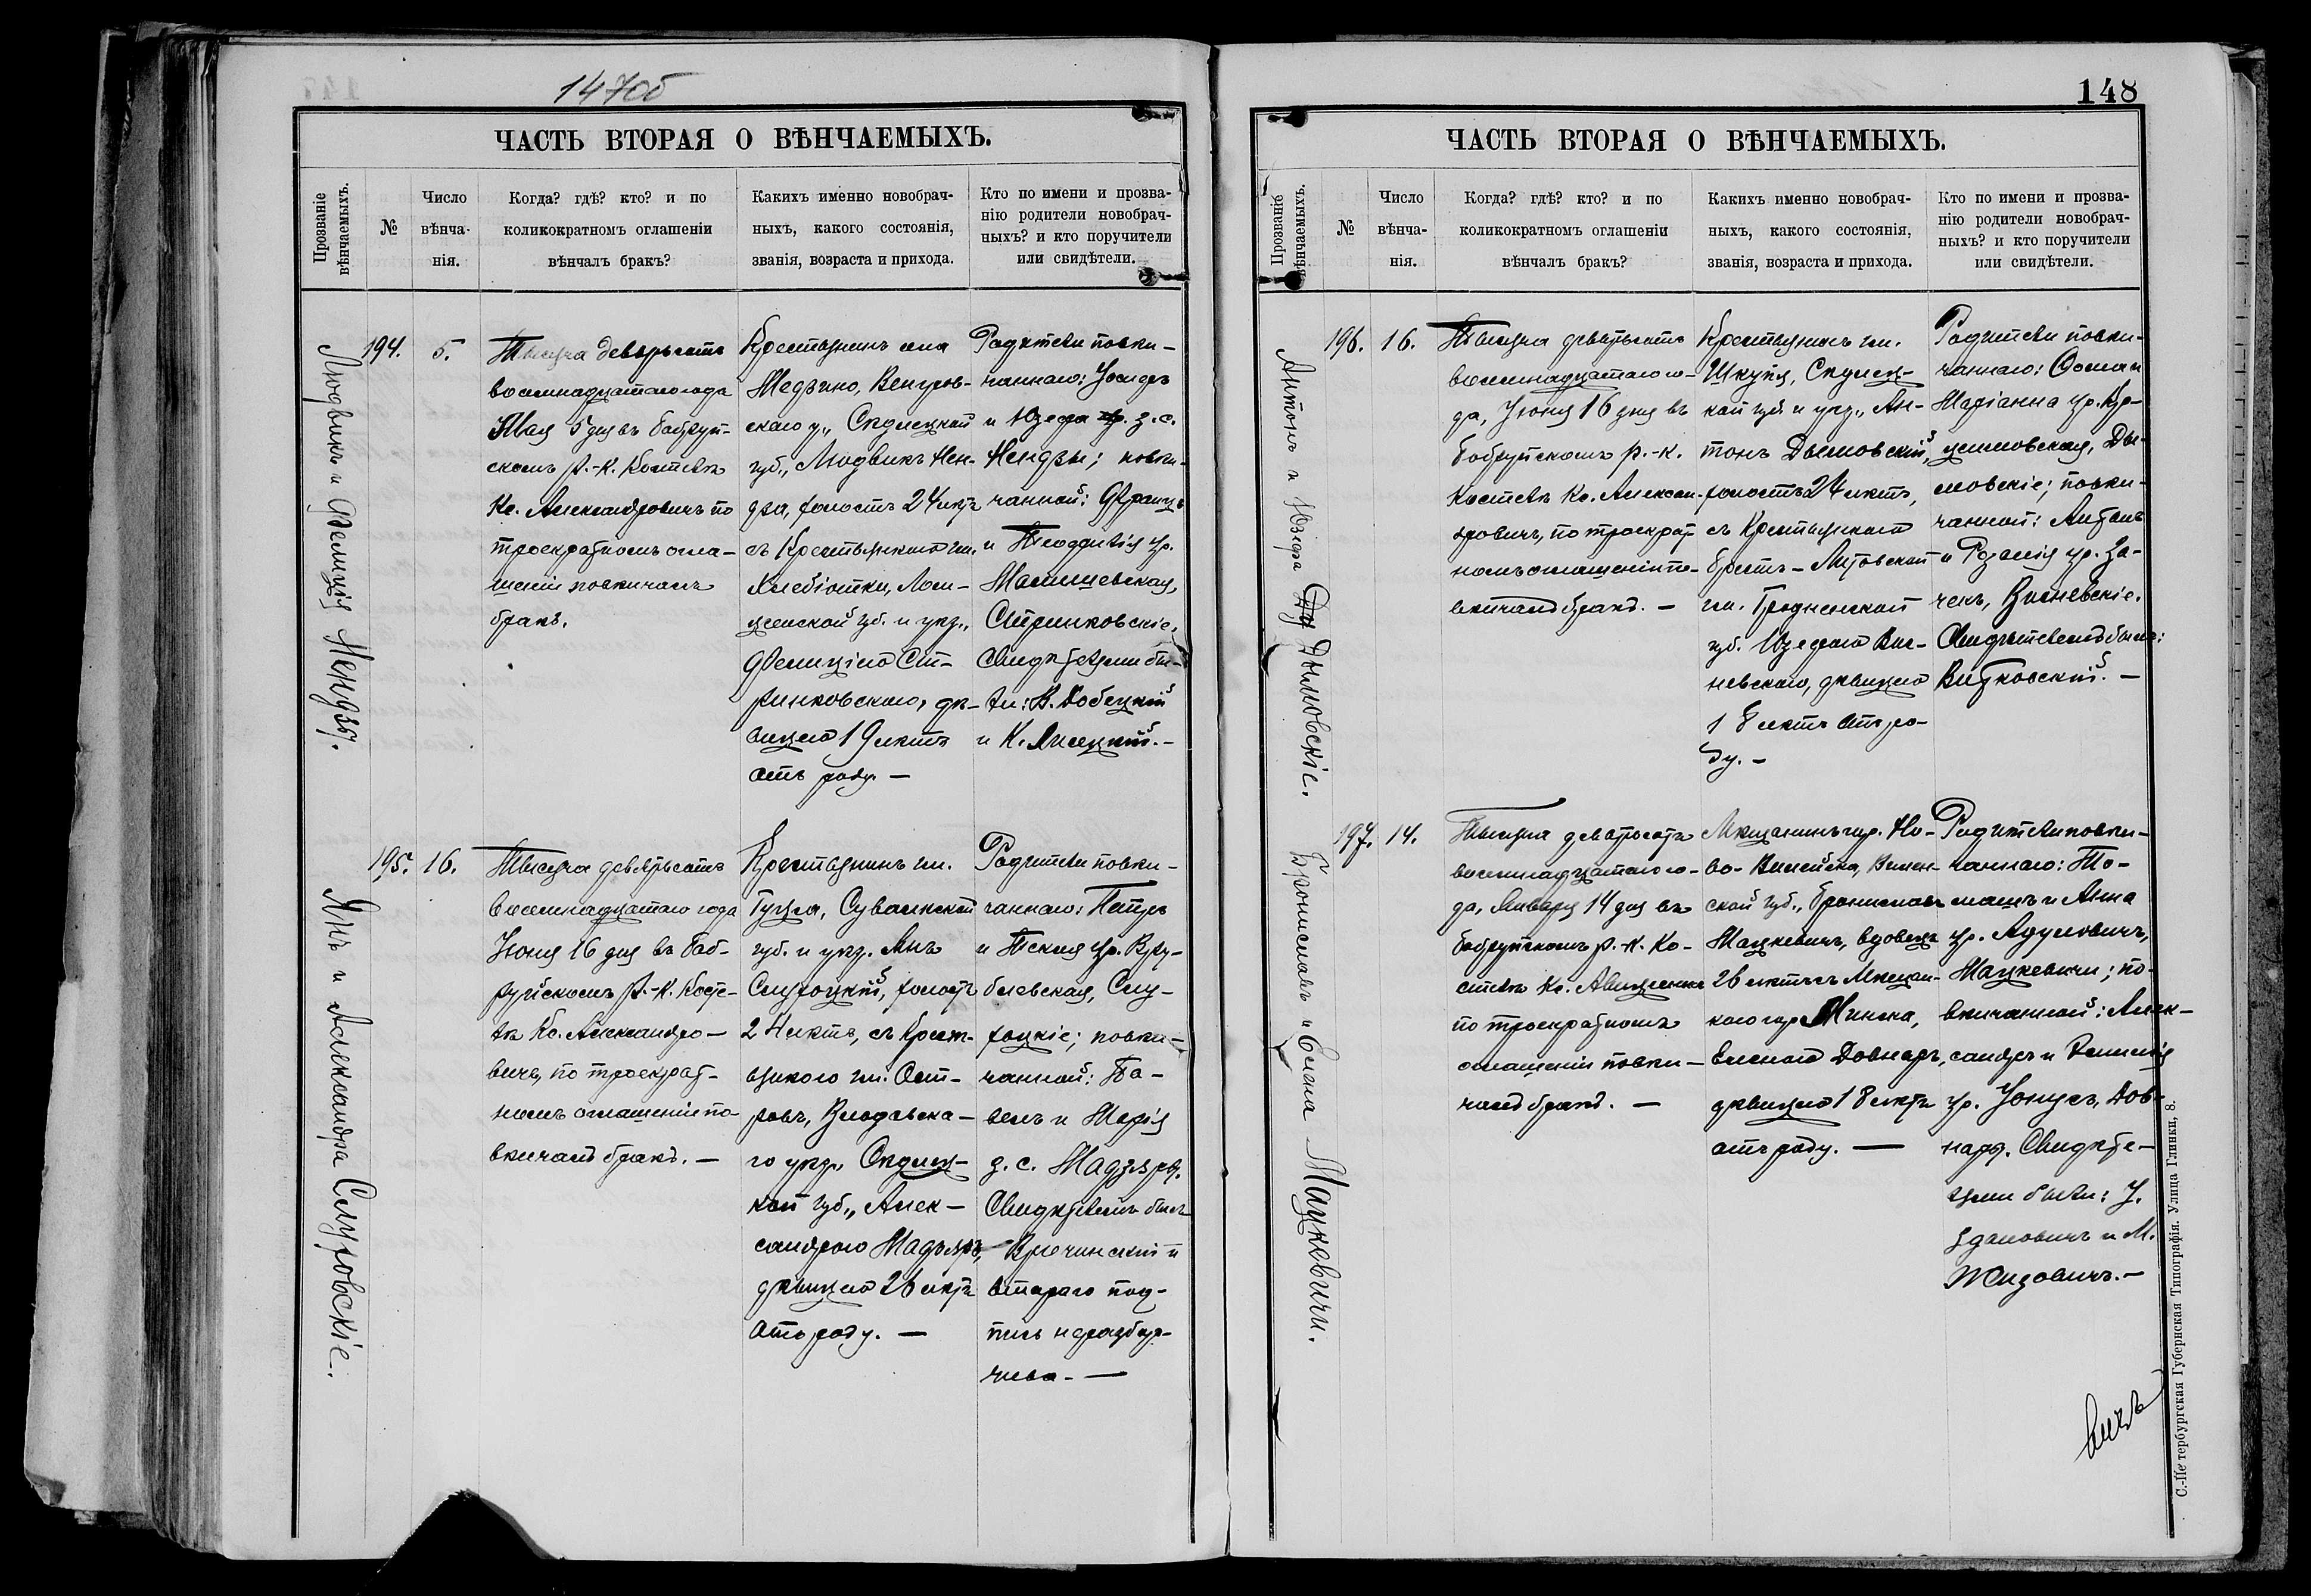 147об
ЧАСТЬ ВТОРАЯ О ВѢНЧАЕМЫХЪ.
Прозваніе
вѣнчаемыхъ.
№
Число
вѣнча-
нія.
Когда? гдѣ? кто? и по
коликократномъ оглашеніи
вѣнчалъ бракъ?
Какихъ именно новобрач-
ныхъ, какого состоянія,
званія, возраста и прихода.
Кто по имени и прозва-
нію родители новобрач-
ныхъ? и кто поручители
или свидѣтели.
Людвикъ и Фелиція Нендзы.
194.
5.
Тысяча девятьсотъ
восемнадцатаго года
Мая 5 дня въ Бобруй-
скомъ р.-к. Костелѣ
Кс. Александровичъ по
троекратномъ огла-
шеніи повѣнчалъ
бракъ.
Крестьянинъ села
Медзьно, Венгров-
скаго у., Сѣдлецкой
губ., Людвикъ Нен-
дза, холостъ 24 лѣтъ
съ Крестьянкою гм.
Хлебіотки, Лом-
жинской губ. и уѣз.,
Фелиціею Ст-
ринковскою, дѣ-
вицею 19 лѣтъ
отъ роду. —
Родители повѣн-
чаннаго: Іосифъ
и Юзефа з. с.
Нендзы; повѣн-
чанной: Францъ
и Теофилія ур.
Малишевская,
Стринковскіе.
Свидѣтелями бы-
ли: В. Добецкій
и К. Лисецкій. —
Янъ и Александра Слуховскіе.
195.
16.
Тысяча девятьсотъ
восемнадцатаго года
Іюня 16 дня въ Боб-
руйскомъ р.-к. Косте-
лѣ Кс. Александро-
вичъ, по троекрат-
номъ оглашеніи по-
вѣнчалъ бракъ. —
Крестьянинъ гм.
Сувалкской
губ. и уѣз. Янъ
холостъ
24 лѣтъ, съ Крест-
янкою гм. Ост-
ровъ, Влодавска-
го уѣз., Сѣдлец-
кой губ., Алек-
сандрою Мадзяръ,
дѣвицею 26 лѣтъ
отъ роду. —
Родители повѣн-
чаннаго: Петръ
и Текля ур. Вру-
блевская, Слу-
хоцкіе; повѣн-
чанной: Па-
велъ и Марія
з. с. Мадзяры.
Свидѣтелемъ былъ
Кречинскій и
втораго под-
пись неразбор-
чива. —
148
ЧАСТЬ ВТОРАЯ О ВѢНЧАЕМЫХЪ.
Прозваніе
вѣнчаемыхъ.
№
Число
вѣнча-
нія.
Когда? гдѣ? кто? и по
коликократномъ оглашеніи
вѣнчалъ бракъ?
Какихъ именно новобрач-
ныхъ, какого состоянія,
званія, возраста и прихода.
Кто по имени и прозва-
нію родители новобрач-
ныхъ? и кто поручители
или свидѣтели.
Антонъ и Юзефа Дымовскіе.
196.
16.
Тысяча девятьсотъ
восемнадцатаго го-
да, Іюня 16 дня въ
Бобруйскомъ р.-к.
Костелѣ Кс. Алексан-
дровичъ, по троекрат-
номъ оглашеніи по-
вѣнчалъ бракъ. —
Крестьянинъ гм.
Шкупя, Сѣдлец-
кой губ. и уѣз., Ан-
тонъ Дымовскій,
холостъ 24 лѣтъ,
съ Крестьянкою
Брестъ-Литовской
гм. Гродненской
губ. Юзефою Виш-
невскою, дѣвицею
18 лѣтъ отъ ро-
ду. —
Родители повѣн-
чаннаго: Осипъ и
Маріанна ур.
Ды-
мовскіе; повѣн-
чанной: Антонъ
и Розалія ур. За-
чекъ, Вишневскіе.
Свидѣтелемъ былъ:
Витковскій. —
Брониславъ и Елена Мацкевичи.
197.
14.
Тысяча девятьсотъ
восемнадцатаго го-
да, Января 14 дня въ
Бобруйскомъ р.-к. Ко-
стелѣ Кс.
по троекратномъ
оглашеніи повѣн-
чалъ бракъ. —
Мѣщанинъ гор. Но-
во-Вилейска, Вилен-
ской губ., Брониславъ
Мацкевичъ, вдовецъ
26 лѣтъ съ Мѣщан-
кою гор. Минска,
Еленою Довнаръ,
дѣвицею 18 лѣтъ
отъ роду. —
Родители повѣн-
чаннаго: То-
машъ и Анна
ур. Адуловичъ,
Мацкевичи; по-
вѣнчанной: Алек-
сандръ и
ур. Іонусъ, Дов-
нары. Свидѣте-
лями были: У.
Здановичъ и М.
Жизовичъ. —
С.-Петербургская Губернская Типографія. Улица Глинки, 8.